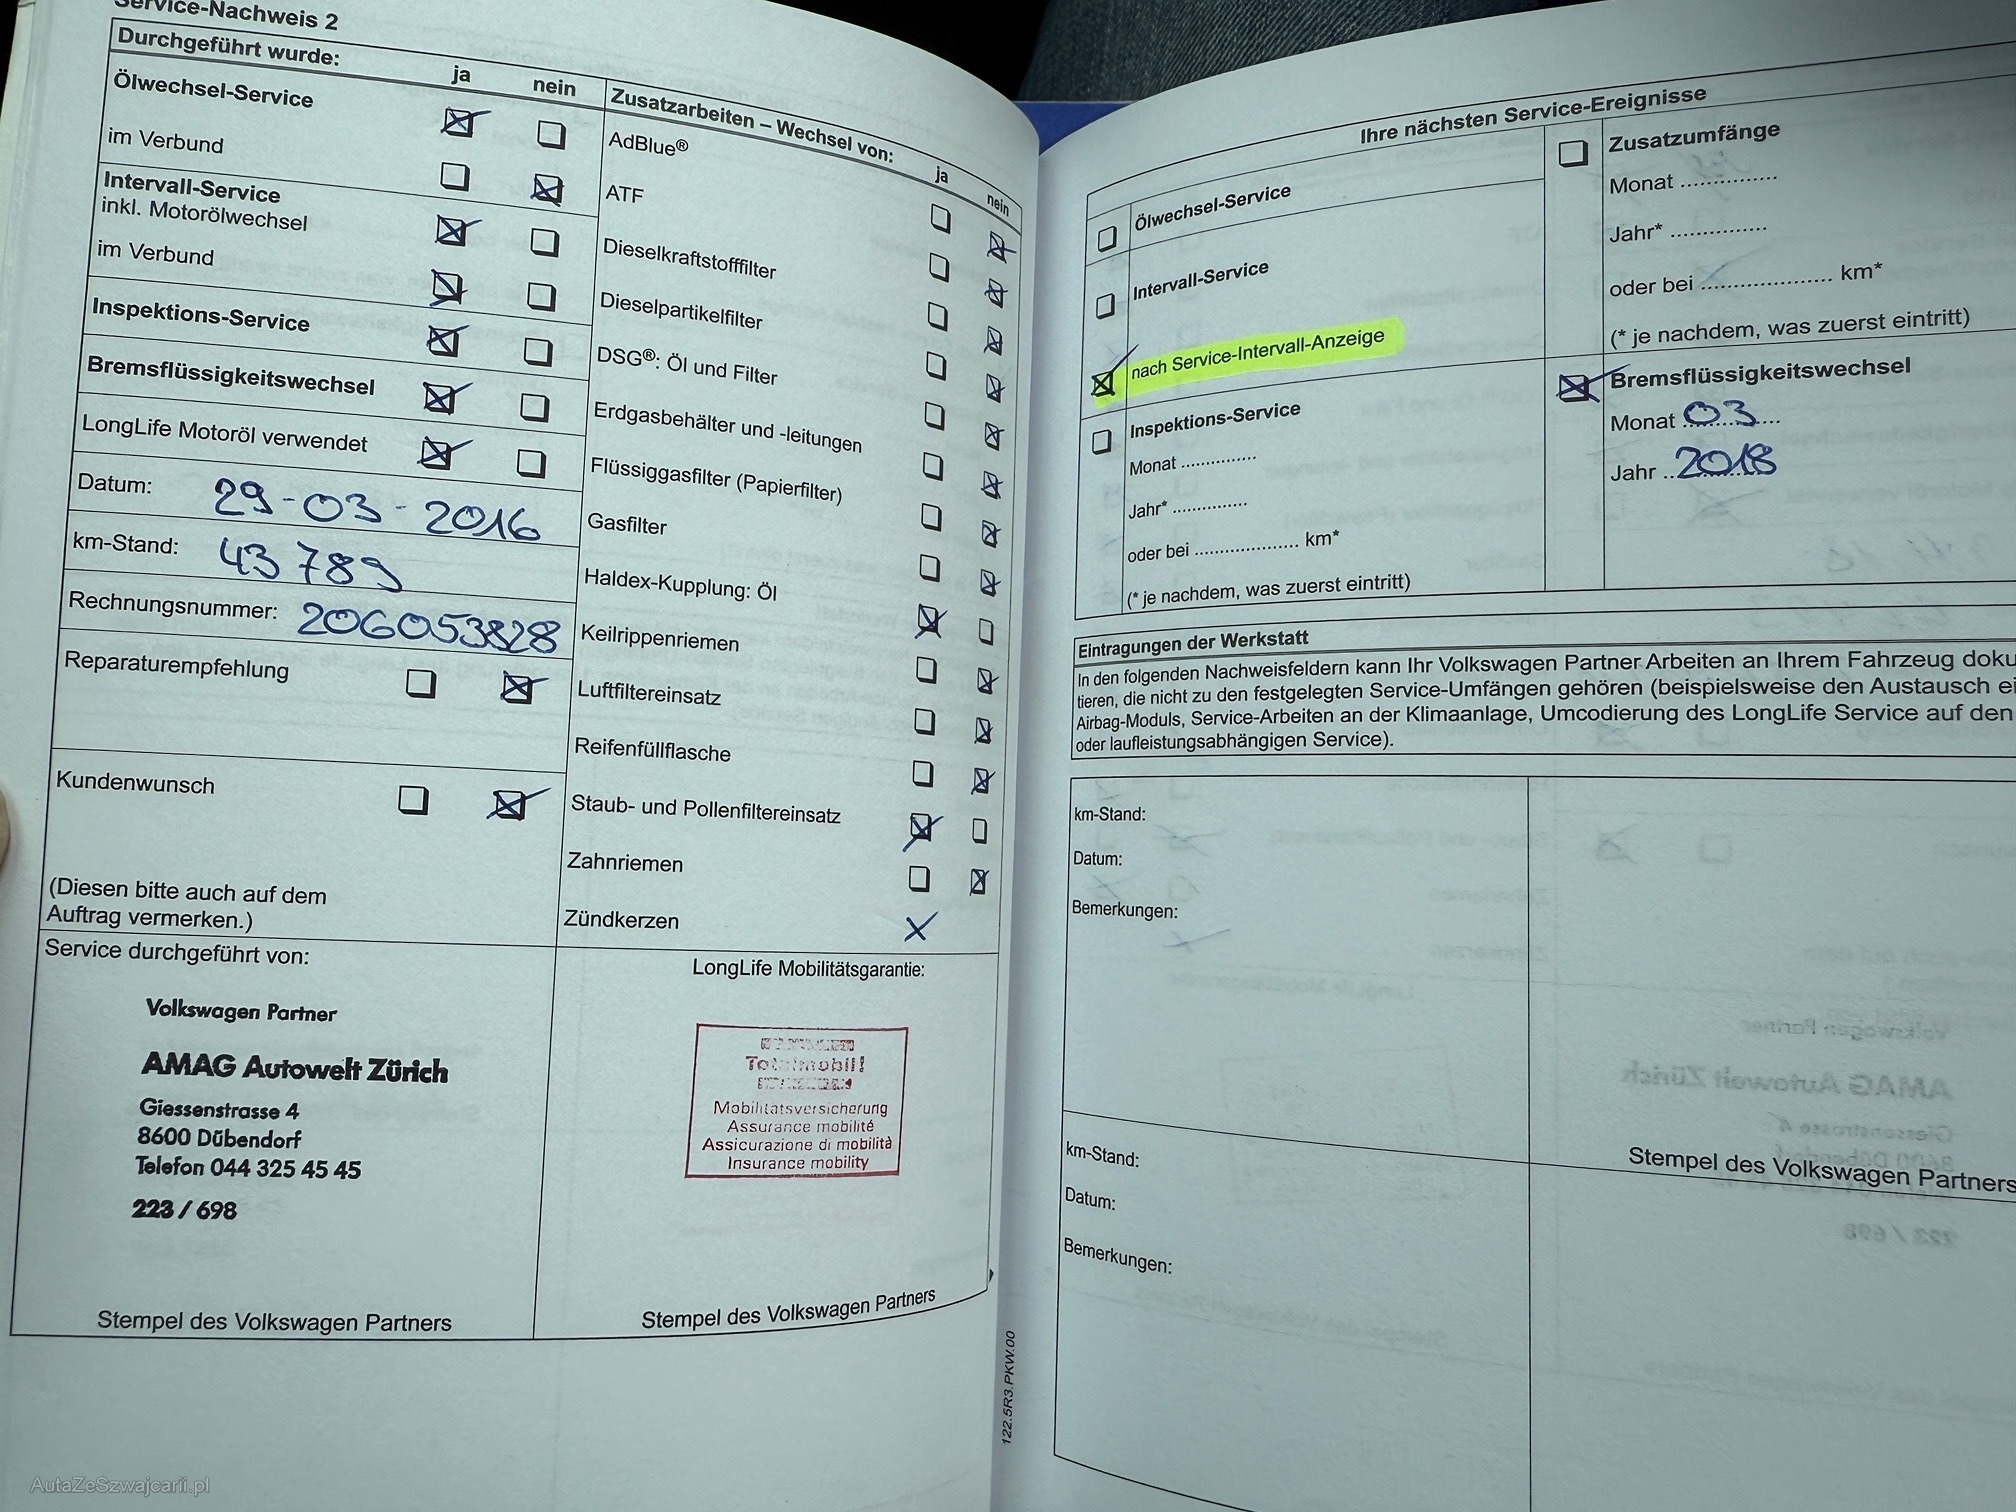 Service-Nachweis 2
Durchgeführt wurde:
ja
nein
Ölwechsel-Service
im Verbund
Intervall-Service
inkl. Motorölwechsel
im Verbund
Inspektions-Service
Bremsflüssigkeitswechsel
LongLife Motoröl verwendet
Datum: 29-03-2016
km-Stand: 43789
Rechnungsnummer: 206053828
Reparaturempfehlung
Kundenwunsch
(Diesen bitte auch auf dem
Auftrag vermerken.)
Zusatzarbeiten – Wechsel von:
ja
nein
AdBlue®
ATF
Dieselkraftstofffilter
Dieselpartikelfilter
DSG®: Öl und Filter
Erdgasbehälter und -leitungen
Flüssiggasfilter (Papierfilter)
Gasfilter
Haldex-Kupplung: Öl
Keilrippenriemen
Luftfiltereinsatz
Reifenfüllflasche
Staub- und Pollenfiltereinsatz
Zahnriemen
Zündkerzen
Service durchgeführt von:
Volkswagen Partner
AMAG Autowelt Zürich
Giessenstrasse 4
8600 Dübendorf
Telefon 044 325 45 45
223 / 698
Stempel des Volkswagen Partners
LongLife Mobilitätsgarantie:
Totalmobil!
Mobilitätsversicherung
Assurance mobilité
Assicurazione di mobilità
Insurance mobility
Stempel des Volkswagen Partners
122.5R3.PKW.00
Ihre nächsten Service-Ereignisse
Ölwechsel-Service
Intervall-Service
nach Service-Intervall-Anzeige
Inspektions-Service
Monat ..............
Jahr* ..............
oder bei .................... km*
(* je nachdem, was zuerst eintritt)
Zusatzumfänge
Monat ...............
Jahr* ...............
oder bei .................... km*
(* je nachdem, was zuerst eintritt)
Bremsflüssigkeitswechsel
Monat 03
Jahr 2018
Eintragungen der Werkstatt
In den folgenden Nachweisfeldern kann Ihr Volkswagen Partner Arbeiten an Ihrem Fahrzeug doku
tieren, die nicht zu den festgelegten Service-Umfängen gehören (beispielsweise den Austausch ei
Airbag-Moduls, Service-Arbeiten an der Klimaanlage, Umcodierung des LongLife Service auf den
oder laufleistungsabhängigen Service).
km-Stand:
Datum:
Bemerkungen:
Stempel des Volkswagen Partners
km-Stand:
Datum:
Bemerkungen:
AutaZeSzwajcarii.pl